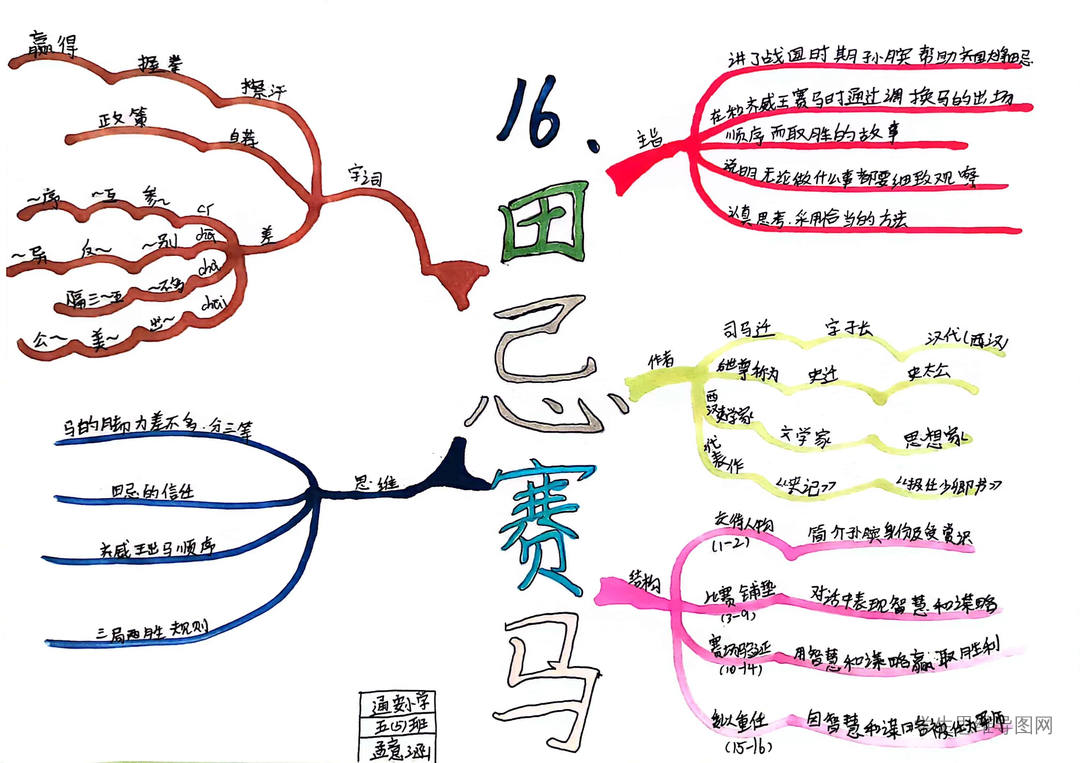 16.
田忌赛马
字词
擦汗
握拳
赢得
自荐
政策
差
cī
参~
~互
~序
chā
~别
反~
~异
chà
~不多
隔三~五
chāi
出~
美~
公~
思维
马的脚力差不多.分三等
田忌的信任
齐威王出马顺序
三局两胜规则
主旨
讲了战国时期孙膑帮助
在和齐威王赛马时通过调换马的出场
顺序而取胜的故事
说明无论做什么事都要细致观察
认真思考.采用恰当的方法
作者
司马迁
字子长
汉代(西汉)
被尊称为
史迁
史太公
西汉史学家
文学家
思想家
代表作
《史记》
《报任少卿书》
结构
交待人物
(1-2)
简介孙膑身份及受赏识
比赛铺垫
(3-9)
对话中表现智慧和谋略
赛场验证
(10-14)
用智慧和谋略赢取胜利
委以重任
(15-16)
因智慧和谋略被任为军师
通安小学
五(5)班
孟意涵
导图网